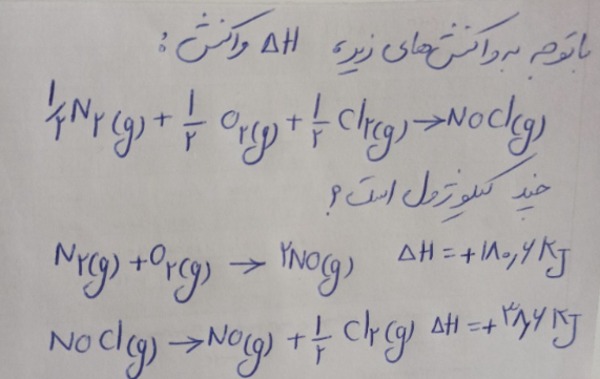 با توجه به واکنش‌های زیر، ΔH واکنش :
½N₂(g) + ½ O₂(g) + ½ Cl₂(g) → NOCl(g)
چند کیلوژول است؟
N₂(g) + O₂(g) → ۲NO(g) ΔH = +۱۸۰,۶ KJ
NOCl(g) → NO(g) + ½ Cl₂(g) ΔH = +۳۸,۶ KJ